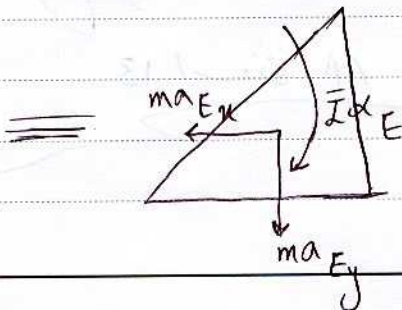 ≡
ma_Ex
Īα
E
ma_Ey